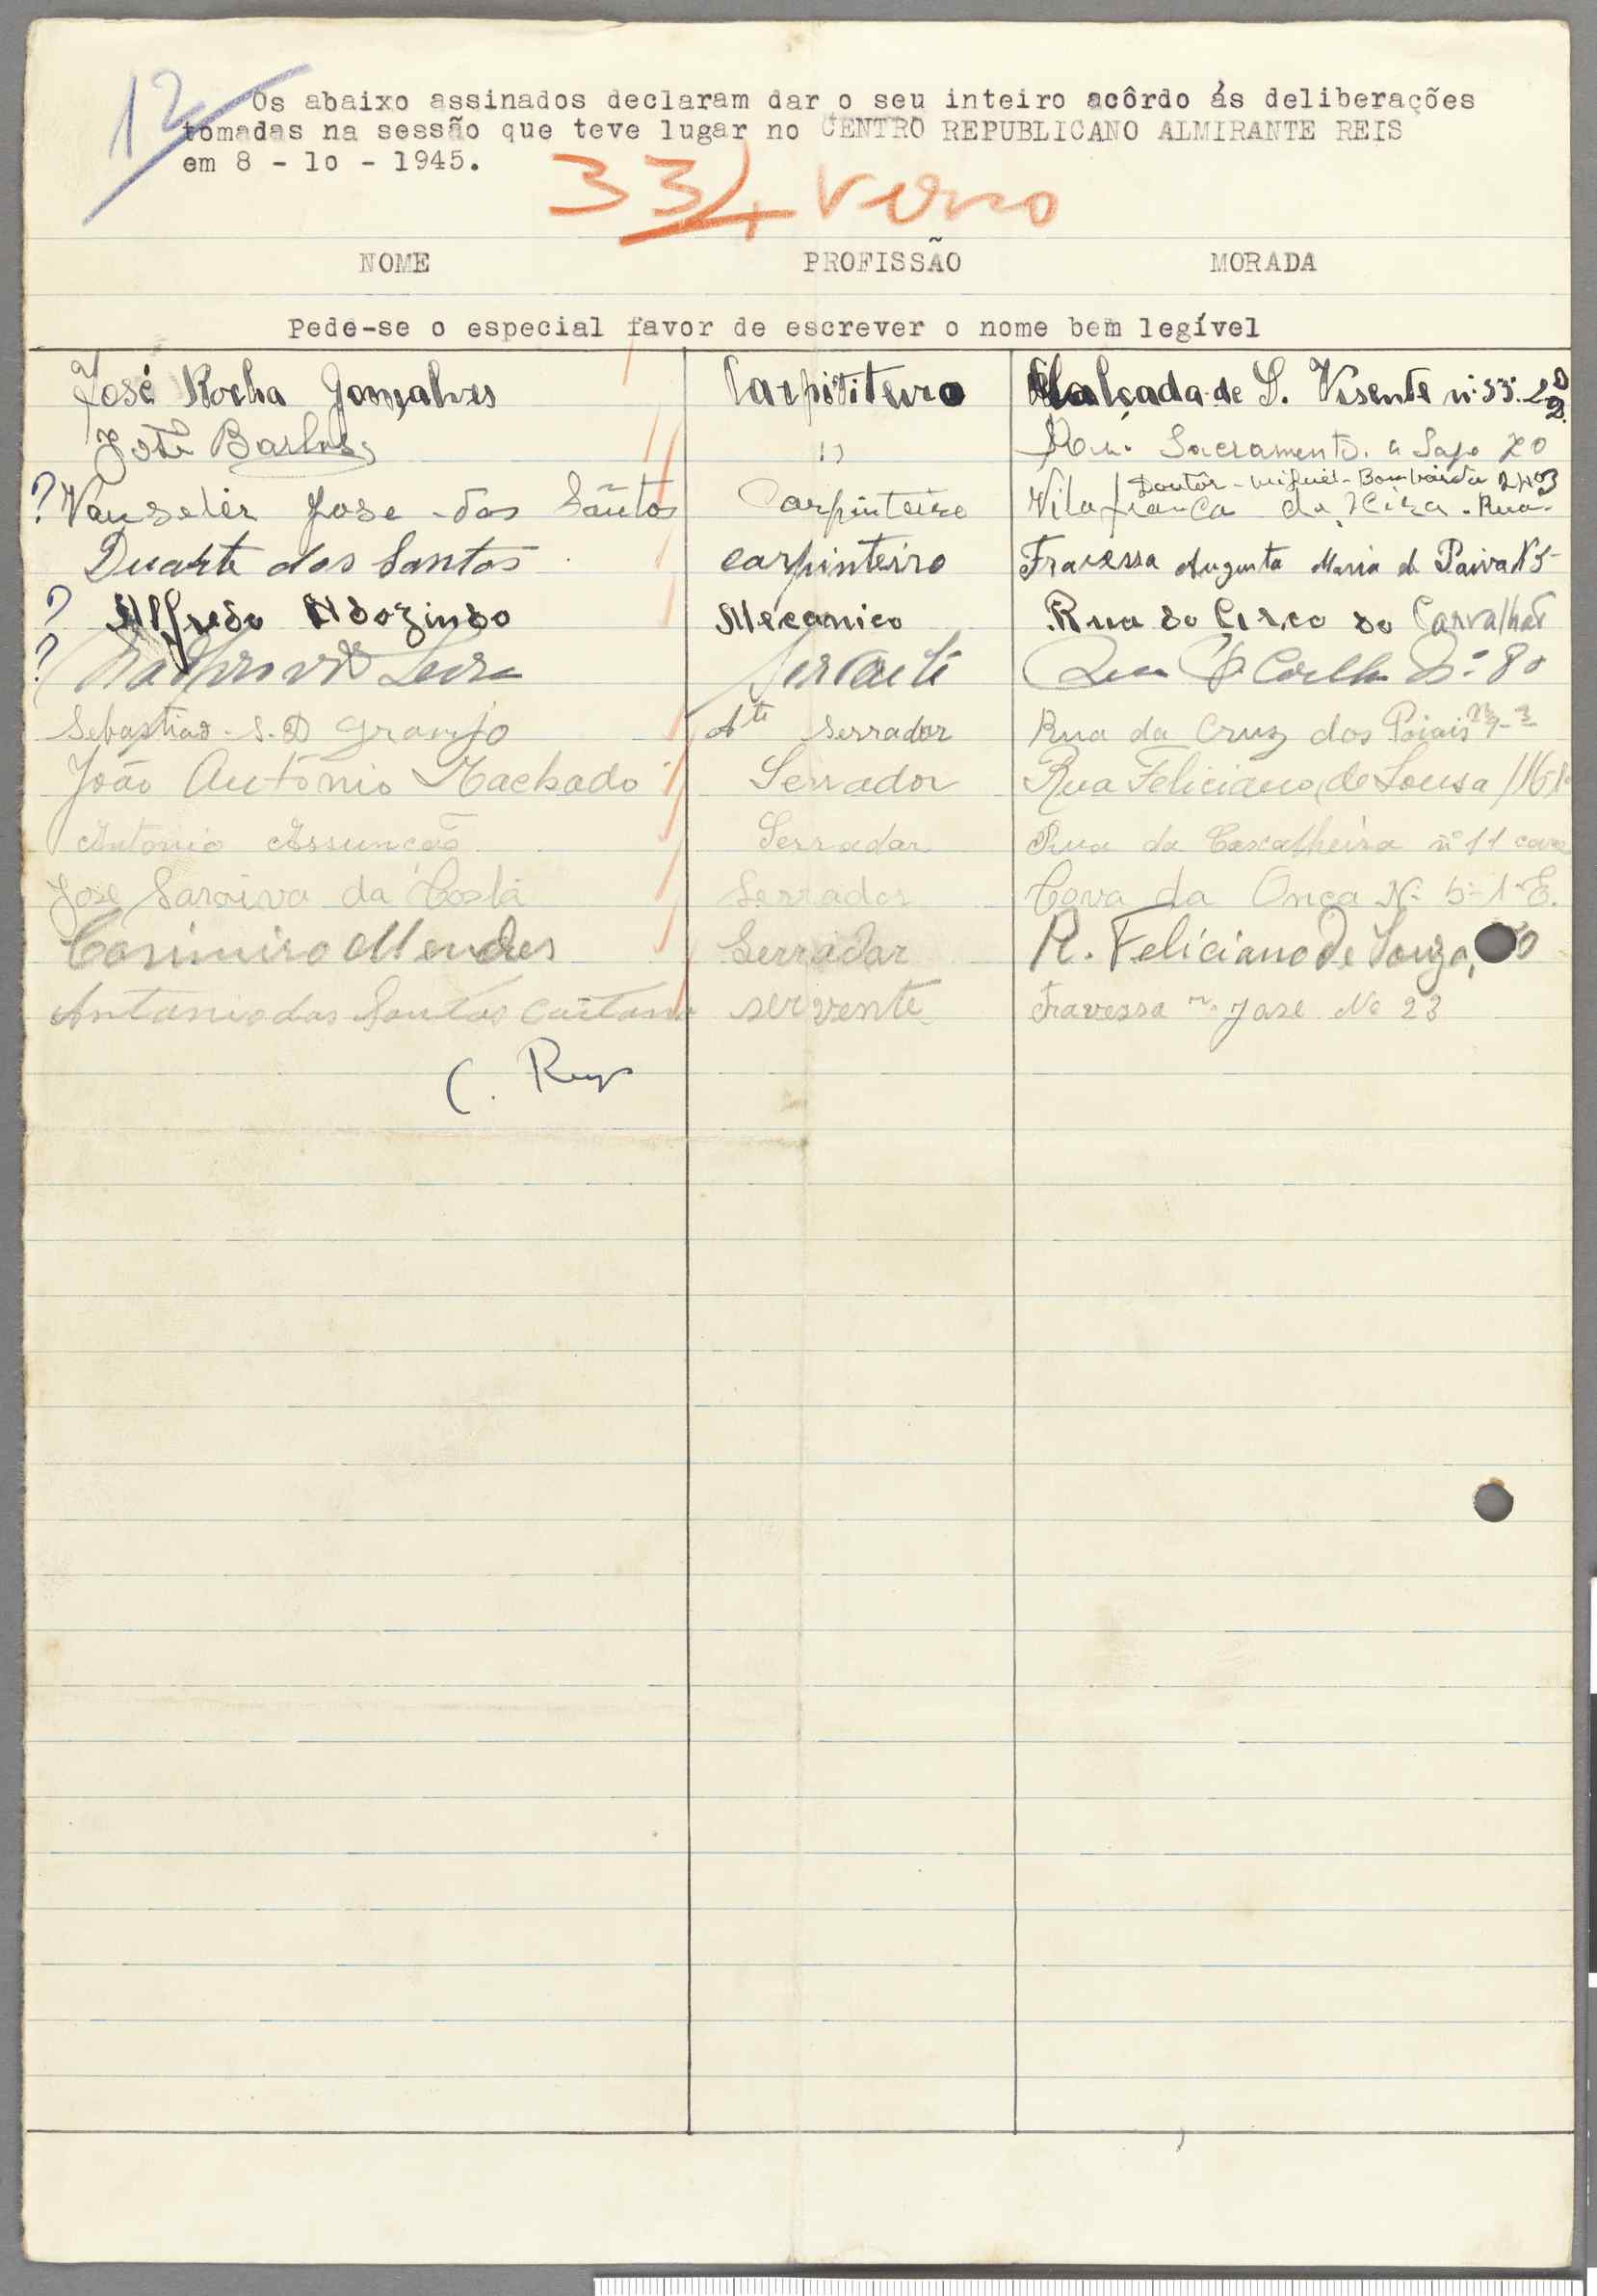 12
Os abaixo assinados declaram dar o seu inteiro acôrdo ás deliberações
tomadas na sessão que teve lugar no CENTRO REPUBLICANO ALMIRANTE REIS
em 8 - 10 - 1945.
334 verso
NOME PROFISSÃO MORADA
Pede-se o especial favor de escrever o nome bem legível
José Rocha Gonçalves Carpititeiro Calçada de S. Visente nº 53. 2º D
José Sacramento. a Lapa 20
Doutôr - Miguel - Bombarda
? José dos Santos Carpinteiro Vila franca da Xira. Rua.
Duarte dos Santos carpinteiro Travessa Augusta Maria de Paiva
? Alfredo Adozindo Mecanico Rua do Circo do Carvalhão
? Coelho Nº 80
Sebastião. S. D Granjo Ate Serrador Rua da Cruz dos Poiais
João António Machado Serrador Rua Feliciano de Sousa
Antonio Assunção Serrador Rua da Cascalheira nº 11 cave
José Saraiva da Costa Serrador Cova da Onça Nº 5-1º E.
Casimiro Mendes Serrador R. Feliciano de Souza,
Antonio dos Santos Caitano servente Travessa José No 23